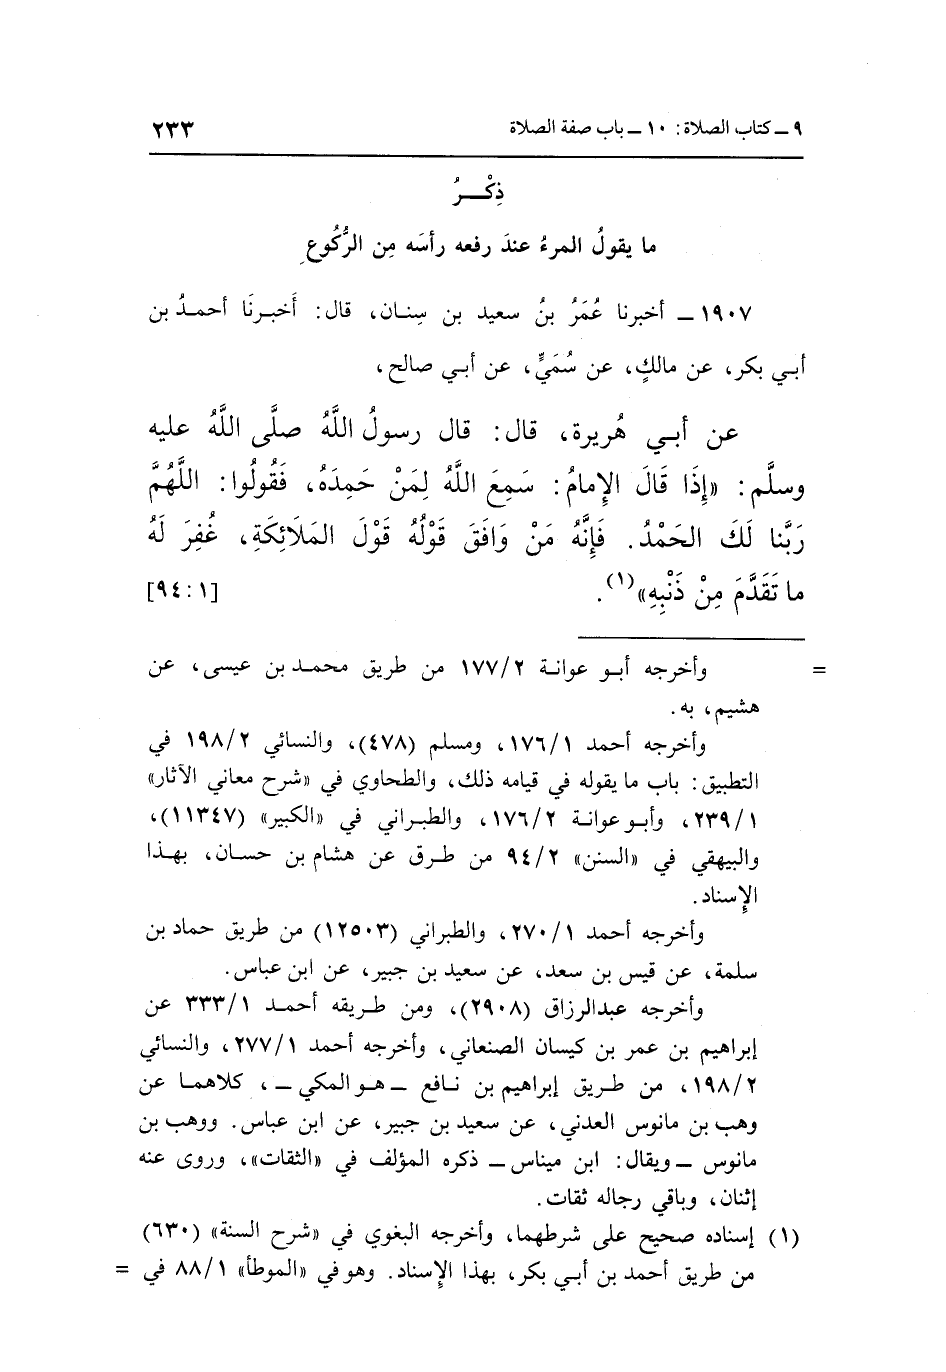 ٩ ــ كتاب الصلاة: ١٠ ــ باب صفة الصلاة ٢٣٣
ذِكْـــرُ
ما يقولُ المرءُ عندَ رفعه رأسَه مِن الرُّكُوعِ
١٩٠٧ ــ أخبرنا عُمَرُ بنُ سعيد بن سِنـان، قال: أَخبـرنَا أحمـدُ بن
أبـي بكر، عن مالكٍ، عن سُمَيٍّ، عن أبـي صالح،
عن أبـي هُريرة، قال: قال رسولُ اللَّهِ صلَّى اللَّهُ عليه
وسلَّم: «إِذَا قَالَ الإِمامُ: سَمِعَ اللَّهُ لِمَنْ حَمِدَهُ، فَقُولُوا: اللَّهُمَّ
رَبَّنا لَكَ الحَمْدُ. فَإِنَّهُ مَنْ وَافَقَ قَوْلُهُ قَوْلَ المَلَائِكَةِ، غُفِرَ لَهُ
ما تَقَدَّمَ مِنْ ذَنْبِهِ»(١). [١:٩٤]
= وأخرجه أبـو عوانـة ١٧٧/٢ من طريق محمـد بن عيسى، عن
هشيم، به.
وأخرجه أحمد ١٧٦/١، ومسلم (٤٧٨)، والنسائي ١٩٨/٢ في
التطبيق: باب ما يقوله في قيامه ذلك، والطحاوي في «شرح معاني الآثار»
٢٣٩/١، وأبـو عوانـة ١٧٦/٢، والطبـراني في «الكبير» (١١٣٤٧)،
والبيهقي في «السنن» ٩٤/٢ من طـرق عن هشام بن حسان، بهـذا
الإِسناد.
وأخرجه أحمد ٢٧٠/١، والطبراني (١٢٥٠٣) من طريق حماد بن
سلمة، عن قيس بن سعد، عن سعيد بن جبير، عن ابن عباس.
وأخرجه عبدالرزاق (٢٩٠٨)، ومن طـريقه أحمـد ٣٣٣/١ عن
إبراهيم بن عمر بن كيسان الصنعاني، وأخرجه أحمد ٢٧٧/١، والنسائي
١٩٨/٢، من طـريق إبراهيم بن نـافع ــ هـو المكي ــ، كلاهمـا عن
وهب بن مانوس العدني، عن سعيد بن جبير، عن ابن عباس. ووهب بن
مانوس ــ ويقال: ابن ميناس ــ ذكره المؤلف في «الثقات»، وروى عنه
إثنان، وباقي رجاله ثقات.
(١) إسناده صحيح على شرطهما، وأخرجه البغوي في «شرح السنة» (٦٣٠)
من طريق أحمد بن أبـي بكر، بهذا الإِسناد. وهو في «الموطأ» ٨٨/١ في =